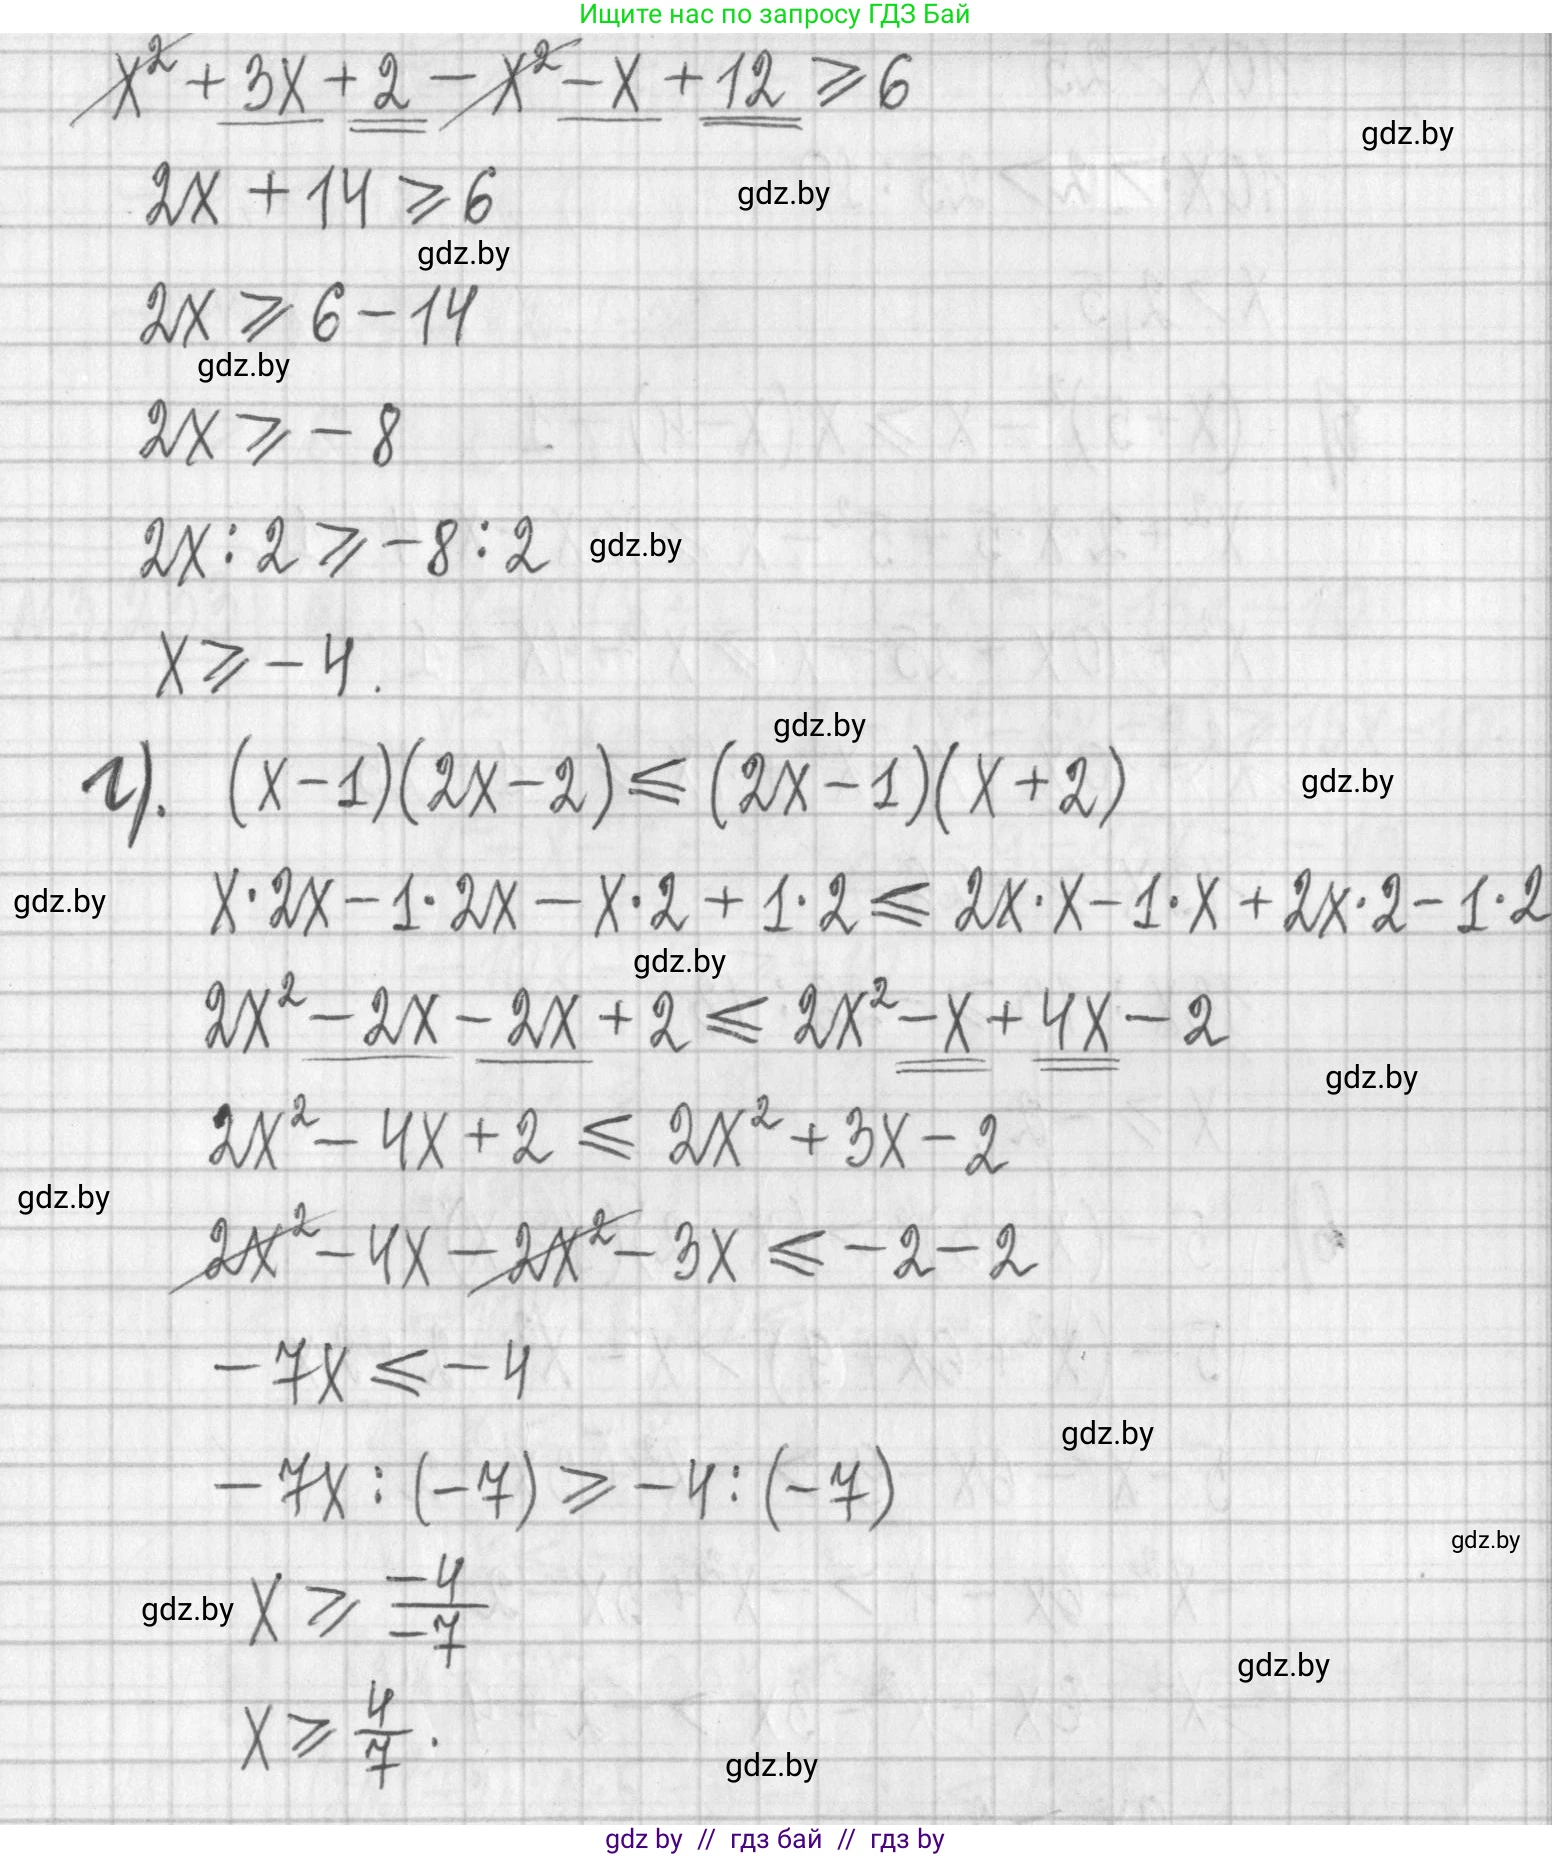 Ищите нас по запросу ГДЗ Бай
x² + 3x + 2 - x² - x + 12 ⩾ 6
gdz.by
2x + 14 ⩾ 6
gdz.by
gdz.by
2x ⩾ 6 - 14
gdz.by
2x ⩾ - 8
2x : 2 ⩾ - 8 : 2
gdz.by
x ⩾ - 4.
gdz.by
г). (x - 1)(2x - 2) ⩽ (2x - 1)(x + 2)
gdz.by
gdz.by
x · 2x - 1 · 2x - x · 2 + 1 · 2 ⩽ 2x · x - 1 · x + 2x · 2 - 1 · 2
gdz.by
2x² - 2x - 2x + 2 ⩽ 2x² - x + 4x - 2
gdz.by
2x² - 4x + 2 ⩽ 2x² + 3x - 2
gdz.by
2x² - 4x - 2x² - 3x ⩽ - 2 - 2
- 7x ⩽ - 4
gdz.by
- 7x : (-7) ⩾ - 4 : (-7)
gdz.by
gdz.by
x ⩾ -4/-7
gdz.by
x ⩾ 4/7.
gdz.by
gdz by // гдз бай // гдз by